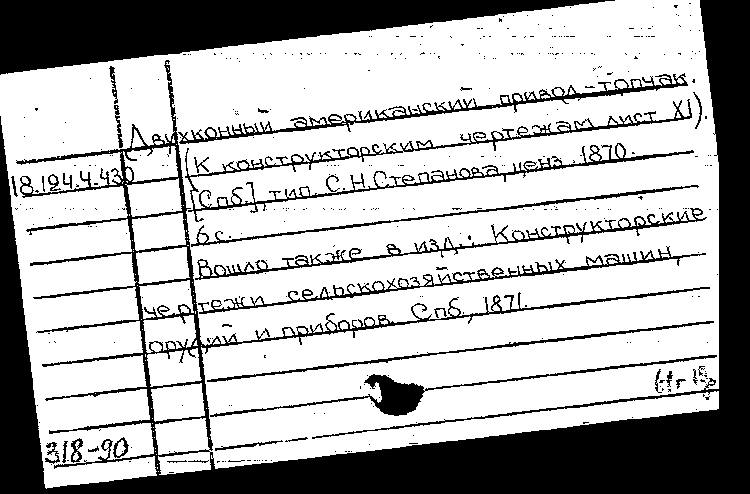 Двухконный американский привод-топчак.
(К конструкторским чертежам лист XI).
18.194.4.430
[Спб.], тип. С.Н.Степанова, ценз. 1870.
6 с.
Вошло также в изд.: Конструкторские
чертежи сельскохозяйственных машин,
орудий и приборов. Спб., 1871.
318-90